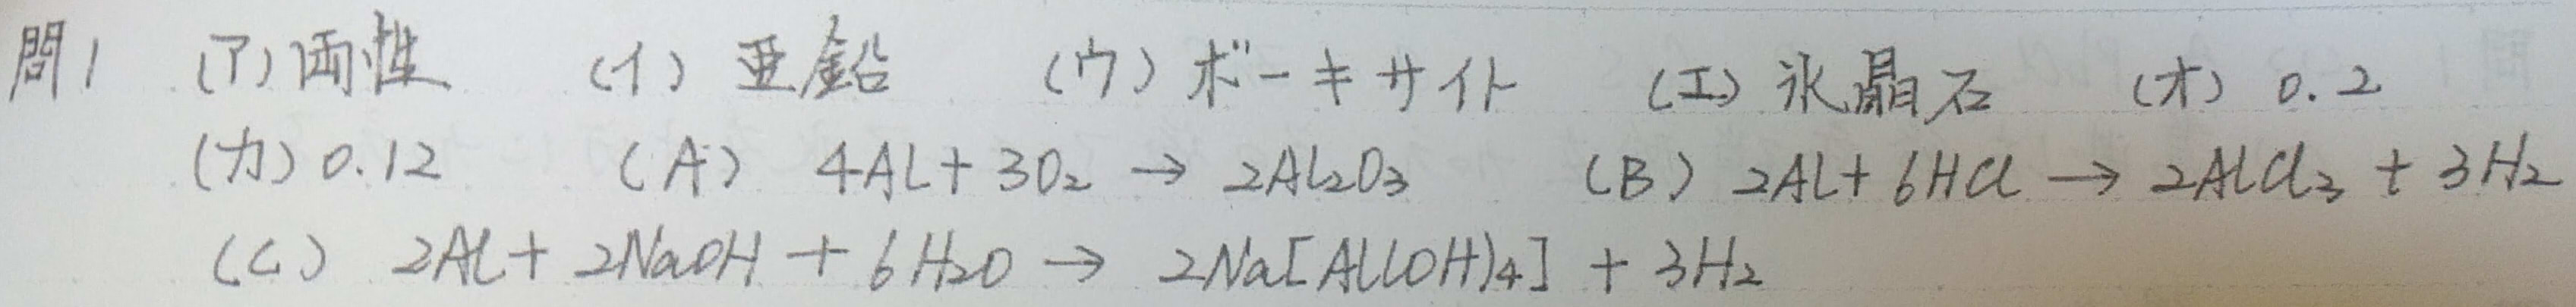 問1 (ア) 両性 (イ) 亜鉛 (ウ) ボーキサイト (エ) 氷晶石 (オ) 0.2
(カ) 0.12 (A) 4Al + 3O₂ → 2Al₂O₃ (B) 2Al + 6HCl → 2AlCl₃ + 3H₂
(C) 2Al + 2NaOH + 6H₂O → 2Na[Al(OH)₄] + 3H₂